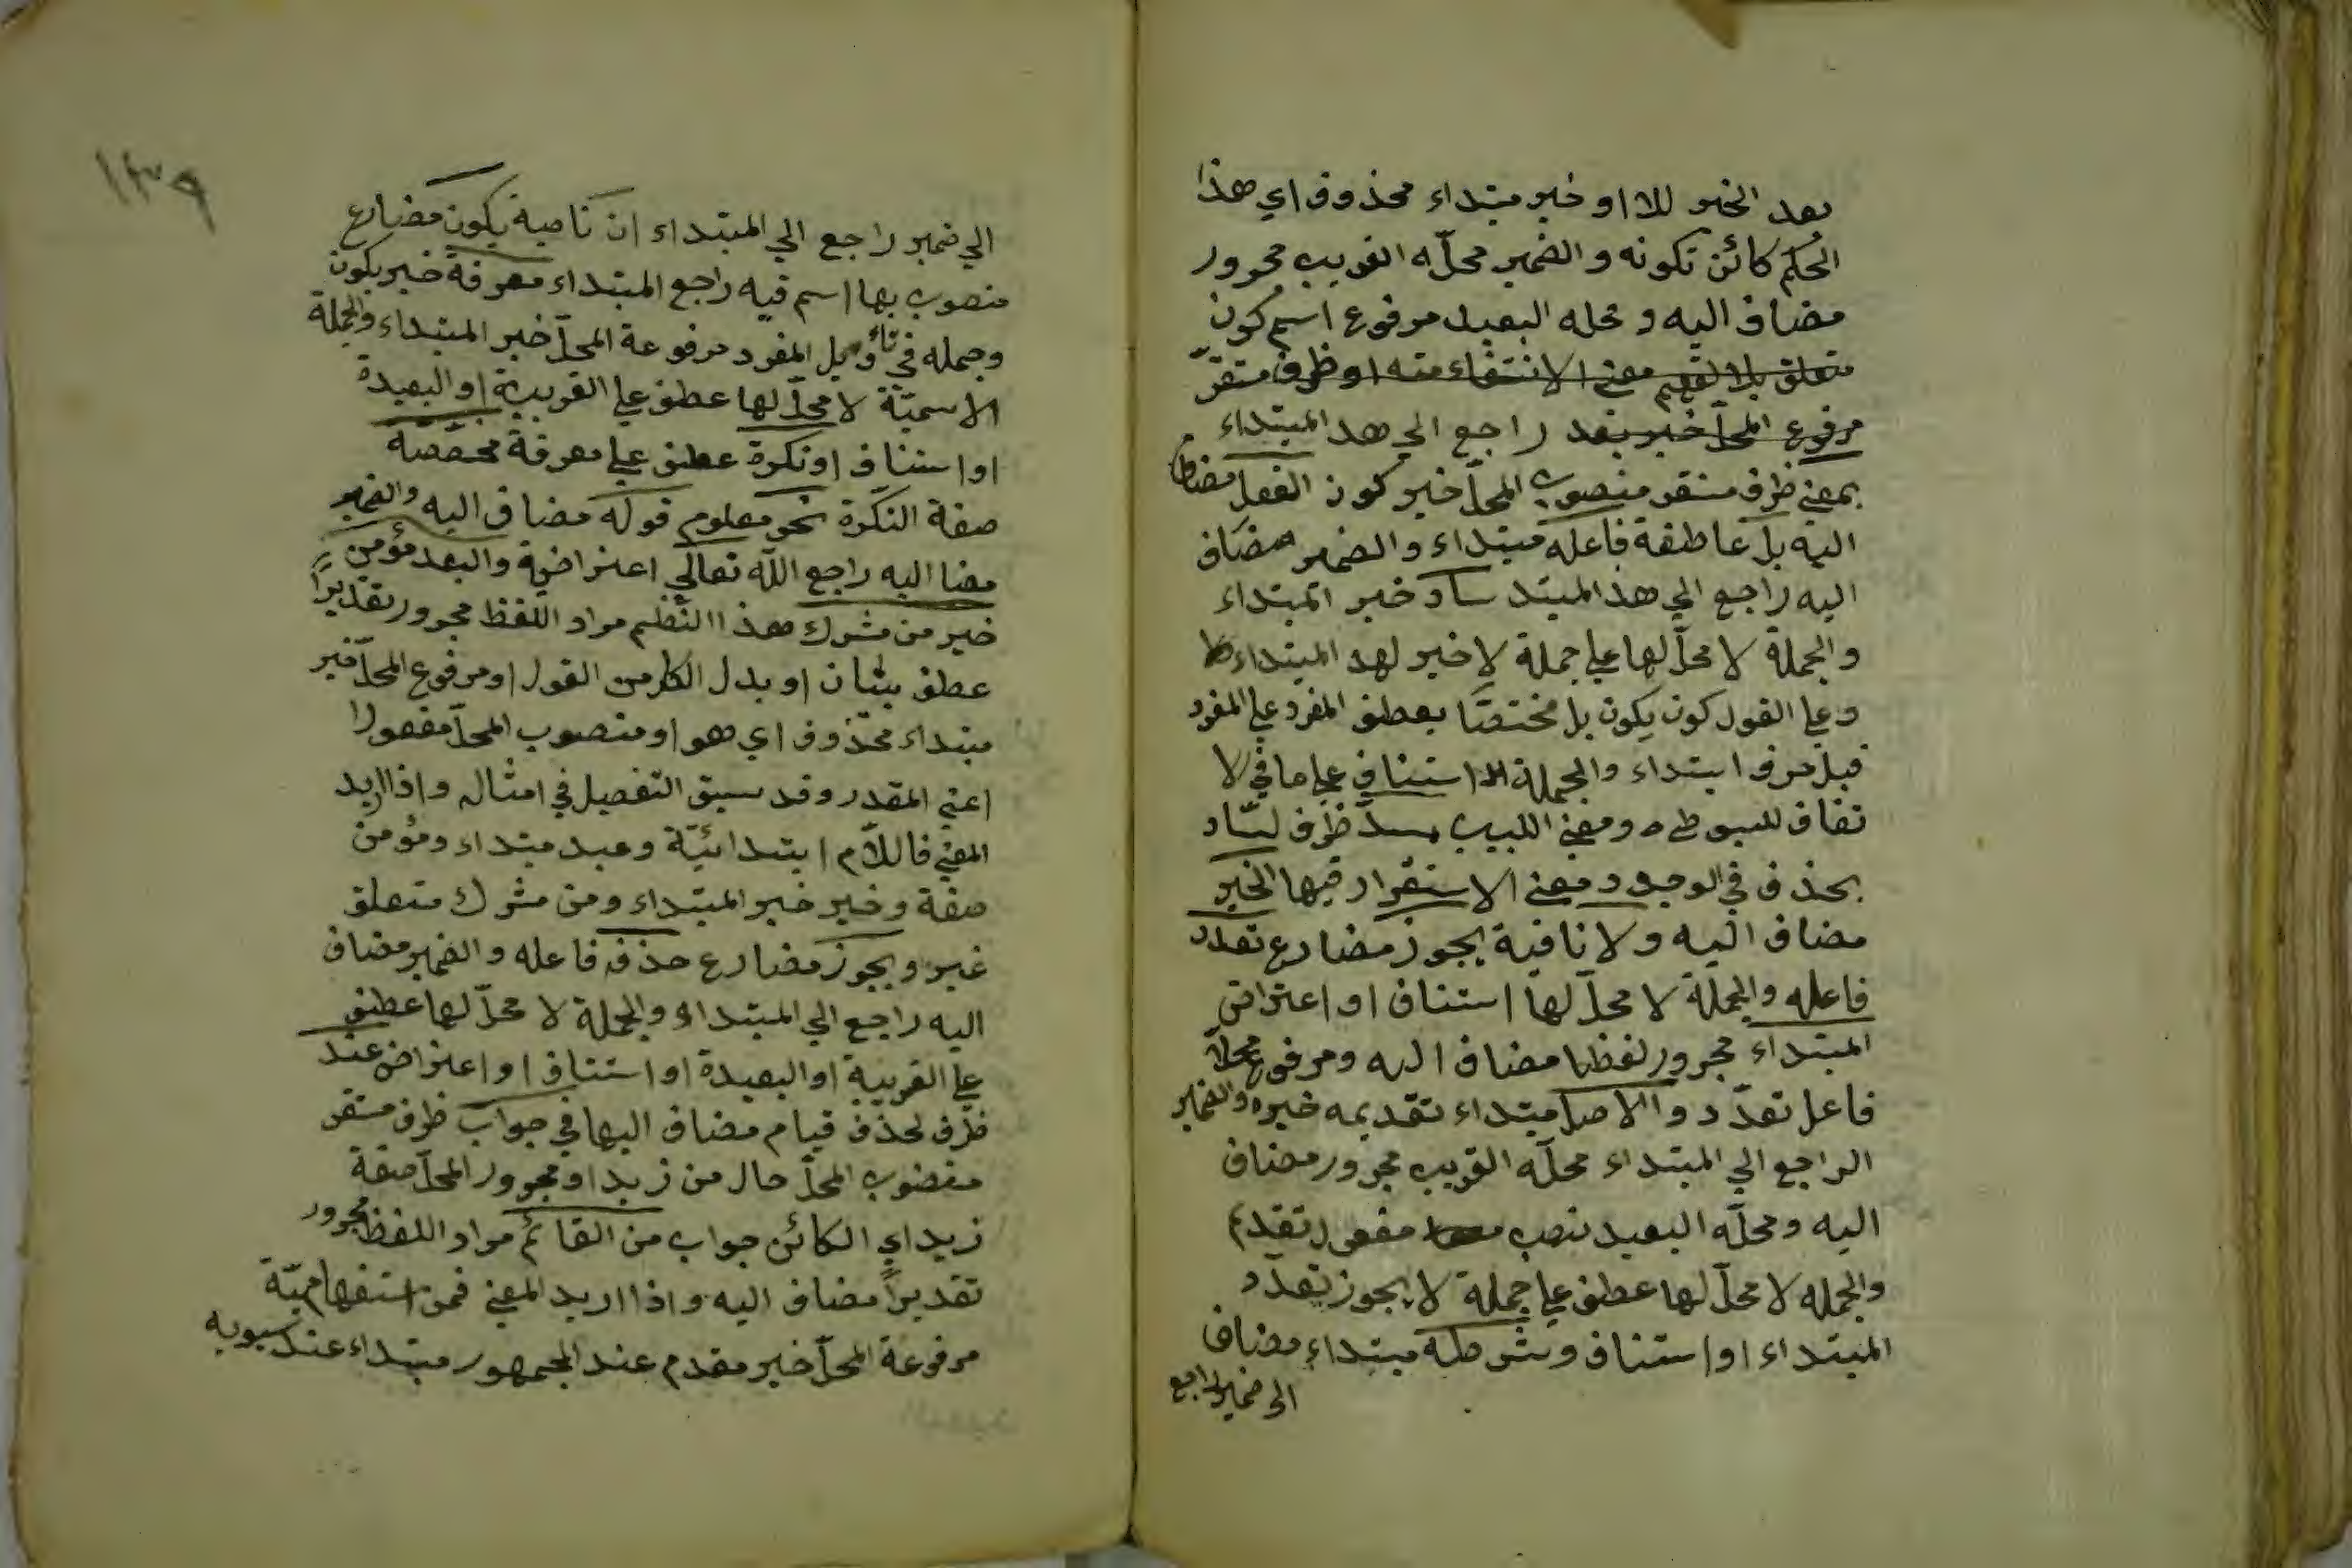 بعد الخبر للا او خبر مبتداء محذوف اي هذا
الحكم كائن تكونه والضمير محلّه القريب مجرور
مضاف اليه و محله البعيد مرفوع اسم كون
متعلق بلا لفهم معنى الانتفاء منه او ظرف مستقرّ
مرفوع المحلّ خبر بعد راجع الى هذ المبتداء
بمعنى ظرف مستقر منصوب المحلّ خبر كون الفعل مضاف
اليه بل عاطفة فاعله مبتداء والضمير مضاف
اليه راجع الى هذ المبتد ساد خبر المبتداء
والجملة لا محلّ لها على جملة لا خبر لهذ المبتداء
وعلى القول كون يكون بل مختصّا بعطف المفرد على المفرد
قبل حرف ابتداء والجملة استناف على ما في لا
تفاق للسيوطي ومغنى اللبيب مسدّ ظرف لسّاد
بحذف في الوجود ومعنى الاستقرار فيها الخبر
مضاف اليه ولا نافية يجوز مضارع تعدد
فاعله والجملة لا محلّ لها استناف او اعتراض
المبتداء مجرور لفظا مضاف اليه ومرفوع محلّا
فاعل تعدّد والاصل مبتداء تقديمه خبره والضمير
الراجع الى المبتداء محلّه القريب مجرور مضاف
اليه ومحلّه البعيد نصب مفعول تقديم
والجمله لا محلّ لها عطف على جملة لا يجوز تعدّد
المبتداء او استناف وشرطه مبتداء مضاف
الى ضمير راجع
١٣٩
الي ضمير راجع الي المبتداء ان ناصبة يكون مضارع
منصوب بها اسم فيه راجع المبتداء معرفة خبر يكون
وجمله في تاويل المفرد مرفوعة المحلّ خبر المبتداء والجملة
الاسميّة لا محلّ لها عطف على القريبة او البعيدة
او استناف او نكرة عطف على معرفة مخصّصة
صفة النكرة نحو معلوم قوله مضاف اليه والضمير
مضا اليه راجع اللّه تعالي اعتراضية والبعد مؤمن
خير من مشرك هذا النّظم مراد اللفظ مجرور تقديرًا
عطف بيان او بدل الكل من القول او مرفوع المحلّ خبر
مبتداء محذوف اي هو او منصوب المحلّ مفعولا
اعني المقدر وقد سبق التفصيل في امثاله واذا اريد
المعنى فاللّام ابتدائيّة وعبد مبتداء ومؤمن
صفة وخير خبر المبتداء ومن مشرك متعلق
خير ويجوز مضارع حذفه فاعله والضمير مضاف
اليه راجع الى المبتداء والجملة لا محلّ لها عطف
على القريبة او البعيدة او استناف او اعتراض عند
ظرف لحذف قيام مضاف اليها في جواب ظرف مستقر
منصوب المحلّ حال من زيد او مجرور المحلّ صفة
زيد اي الكائن جواب من القائم مراد اللفظ مجرور
تقديراً مضاف اليه واذا اريد المعنى فمن استفهاميّة
مرفوعة المحلّ خبر مقدم عند الجمهور مبتداء عند سيبويه